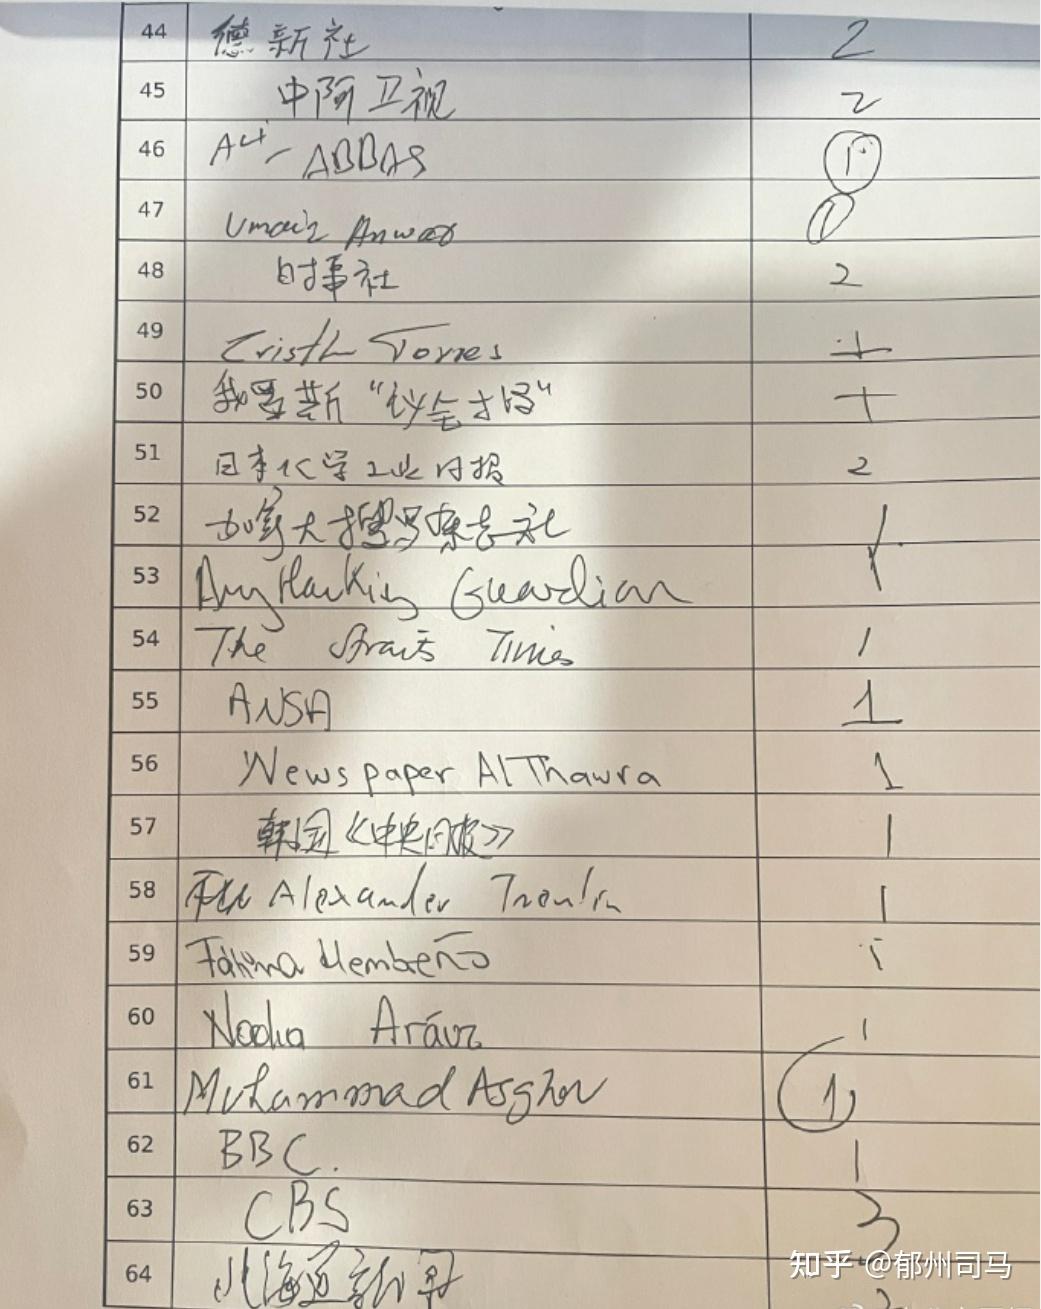 44 德新社 2
45 中阿卫视 2
46 ABBAS 1
47 Umair Anwar 1
48 时事社 2
49 Torres 1
50 俄罗斯 1
51 日本化学工业日报 2
52 加拿大 杂志社 1
53 Amy Hawkins Guardian 1
54 The Straits Times 1
55 ANSA 1
56 Newspaper Al Thawra 1
57 韩国《中央日报》 1
58 Alexander 1
59 Fátima 1
60 Nadia Aráuz 1
61 Muhammad Asghar 1
62 BBC. 1
63 CBS 3
64 北海道新闻
知乎 @郁州司马